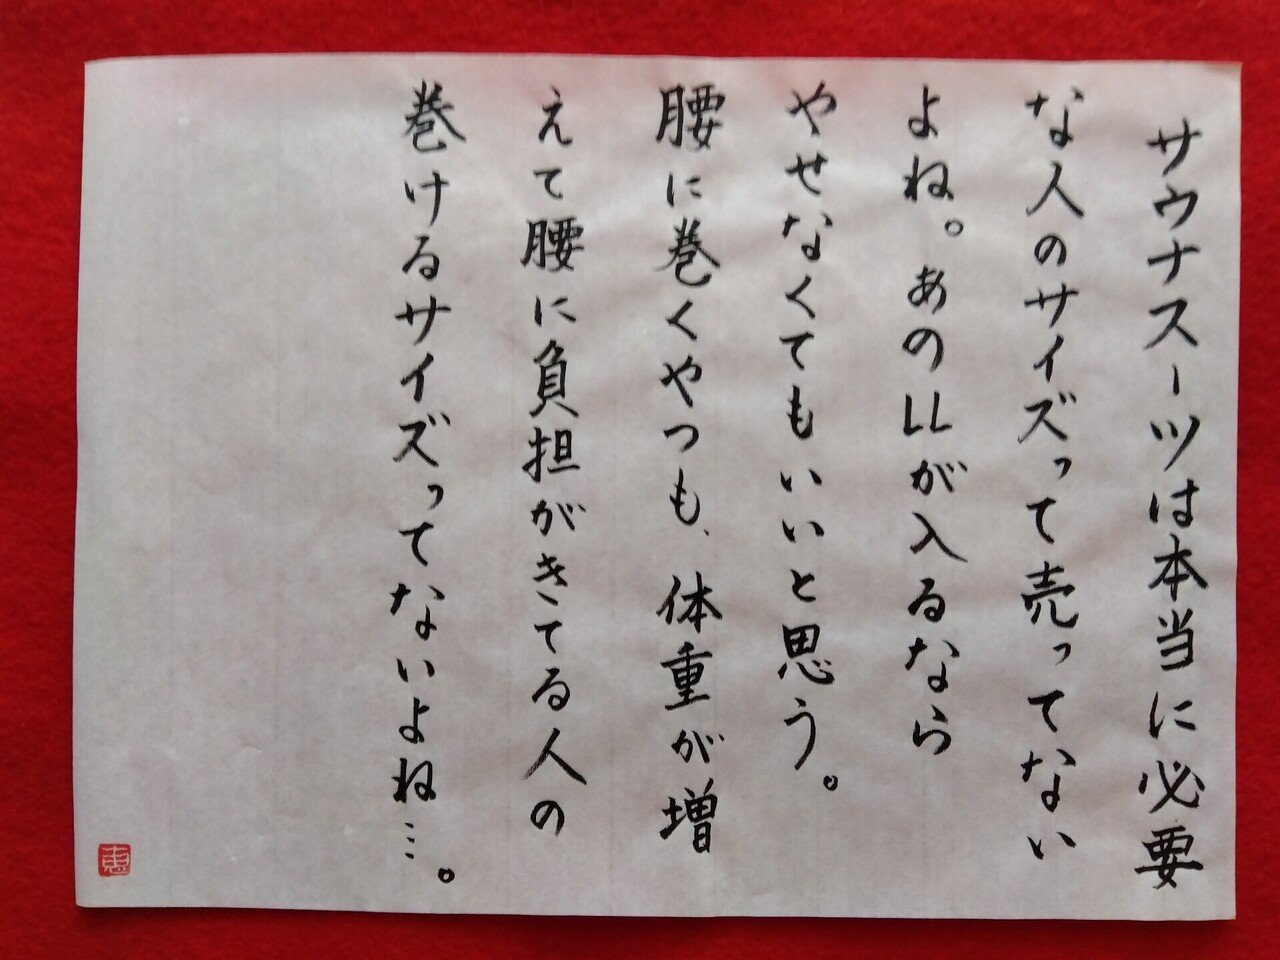 サウナスーツは本当に必要
な人のサイズって売ってない
よね。あのLLが入るなら
やせなくてもいいと思う。
腰に巻くやつも、体重が増
えて腰に負担がきてる人の
巻けるサイズってないよね…。
恵